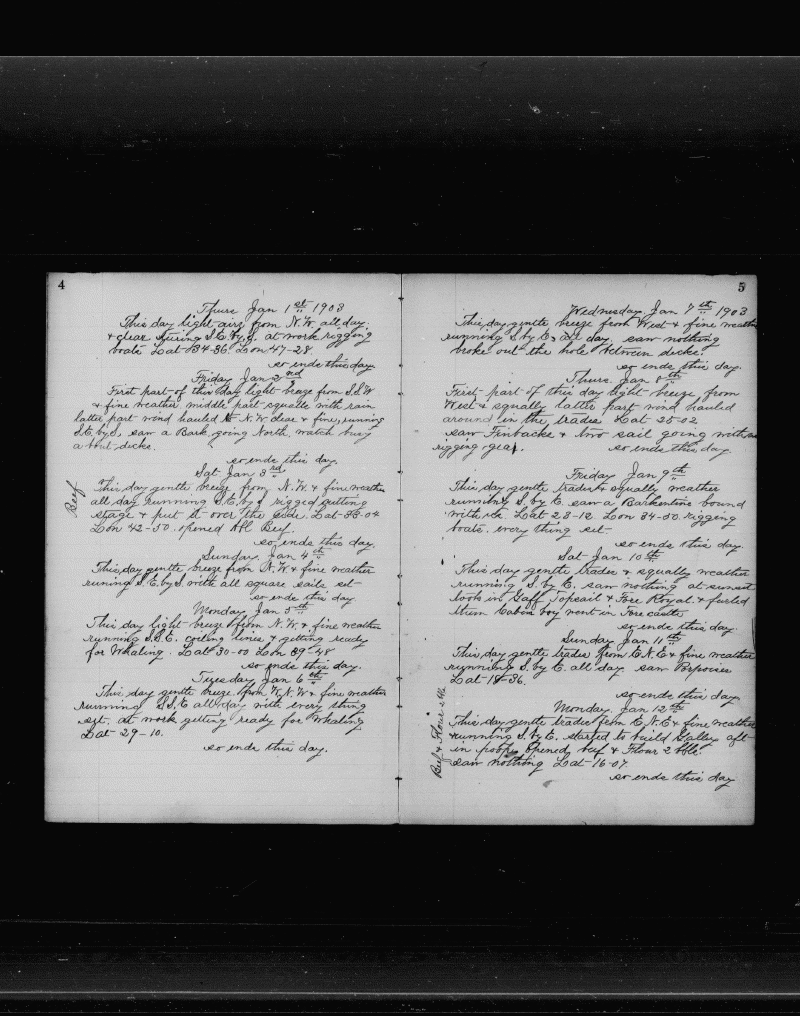 4
Thurs Jan 1st 1903
This day light airs from N.W. all day.
& clear stering S.E. by S. at work rigging
boats Lat 34-36 Lon 47-28
so ends this day
Friday Jan 2nd
First part of this day light breeze from S.S.W
& fine weather middle part squalls with rain
latter part wind hauled to N.W. clear & fine, running
S.E. by S, saw a Bark going North. watch busy
a bout decks.
so ends this day.
Sat Jan 3rd
Beef
This day gentle breeze from N.W. & fine weather
all day running S.E. by S rigged cutting
stage & put it over the side. Lat-33-04
Lon 42-50. opened Bbl Beef.
so ends this day.
Sunday Jan 4th
This day gentle breeze from N.W. & fine weather
runing S.E. by S. with all square sails set
so ends this day
Monday Jan 5th
This day light breeze from N.W. & fine weather
running S.S.E. coiling lines & getting ready
for Whaling. Lat 30-00 Lon 39-48
so ends this day.
Tuesday Jan 6th
This day gentle breeze from W.N.W & fine weather
running S.S.E all day with every thing
set. at work getting ready for Whaling
Lat-29-10.
so ends this day.
5
Wednesday Jan 7th 1903
This day gentle breeze from West & fine weather
running S. by E. all day. saw nothing
broke out the hole between decks.
so ends this day.
Thurs. Jan 8th
First part of this day light breeze from
West & squally latter part wind hauled
around in the trades Lat 25-02
saw Finbacks & two sail going with us
rigging gear. so ends this day.
Friday Jan 9th
This day gentle trades & squally weather
running S. by E. saw a Barkentine bound
with us Lat 23-12 Lon 34-50. rigging
boats. every thing set
so ends this day.
Sat Jan 10th
This day gentle trades & squally weather
running S. by E. saw nothing at sunset
took in Gaff Topsail & Fore Royal & furled
them Cabin boy went in Fore castle
so ends this day.
Sunday Jan 11th
This day gentle trades from E.N.E & fine weather
running S. by E. all day saw Porpoises
Lat-18-36.
so ends this day
Monday. Jan 12th
Beef & Flour 2 bbls
This day gentle trades from E.N.E & fine weather
running S. by E. started to build Galley aft
in poop, opened beef & Flour 2 bbls.
saw nothing Lat-16-07
so ends this day